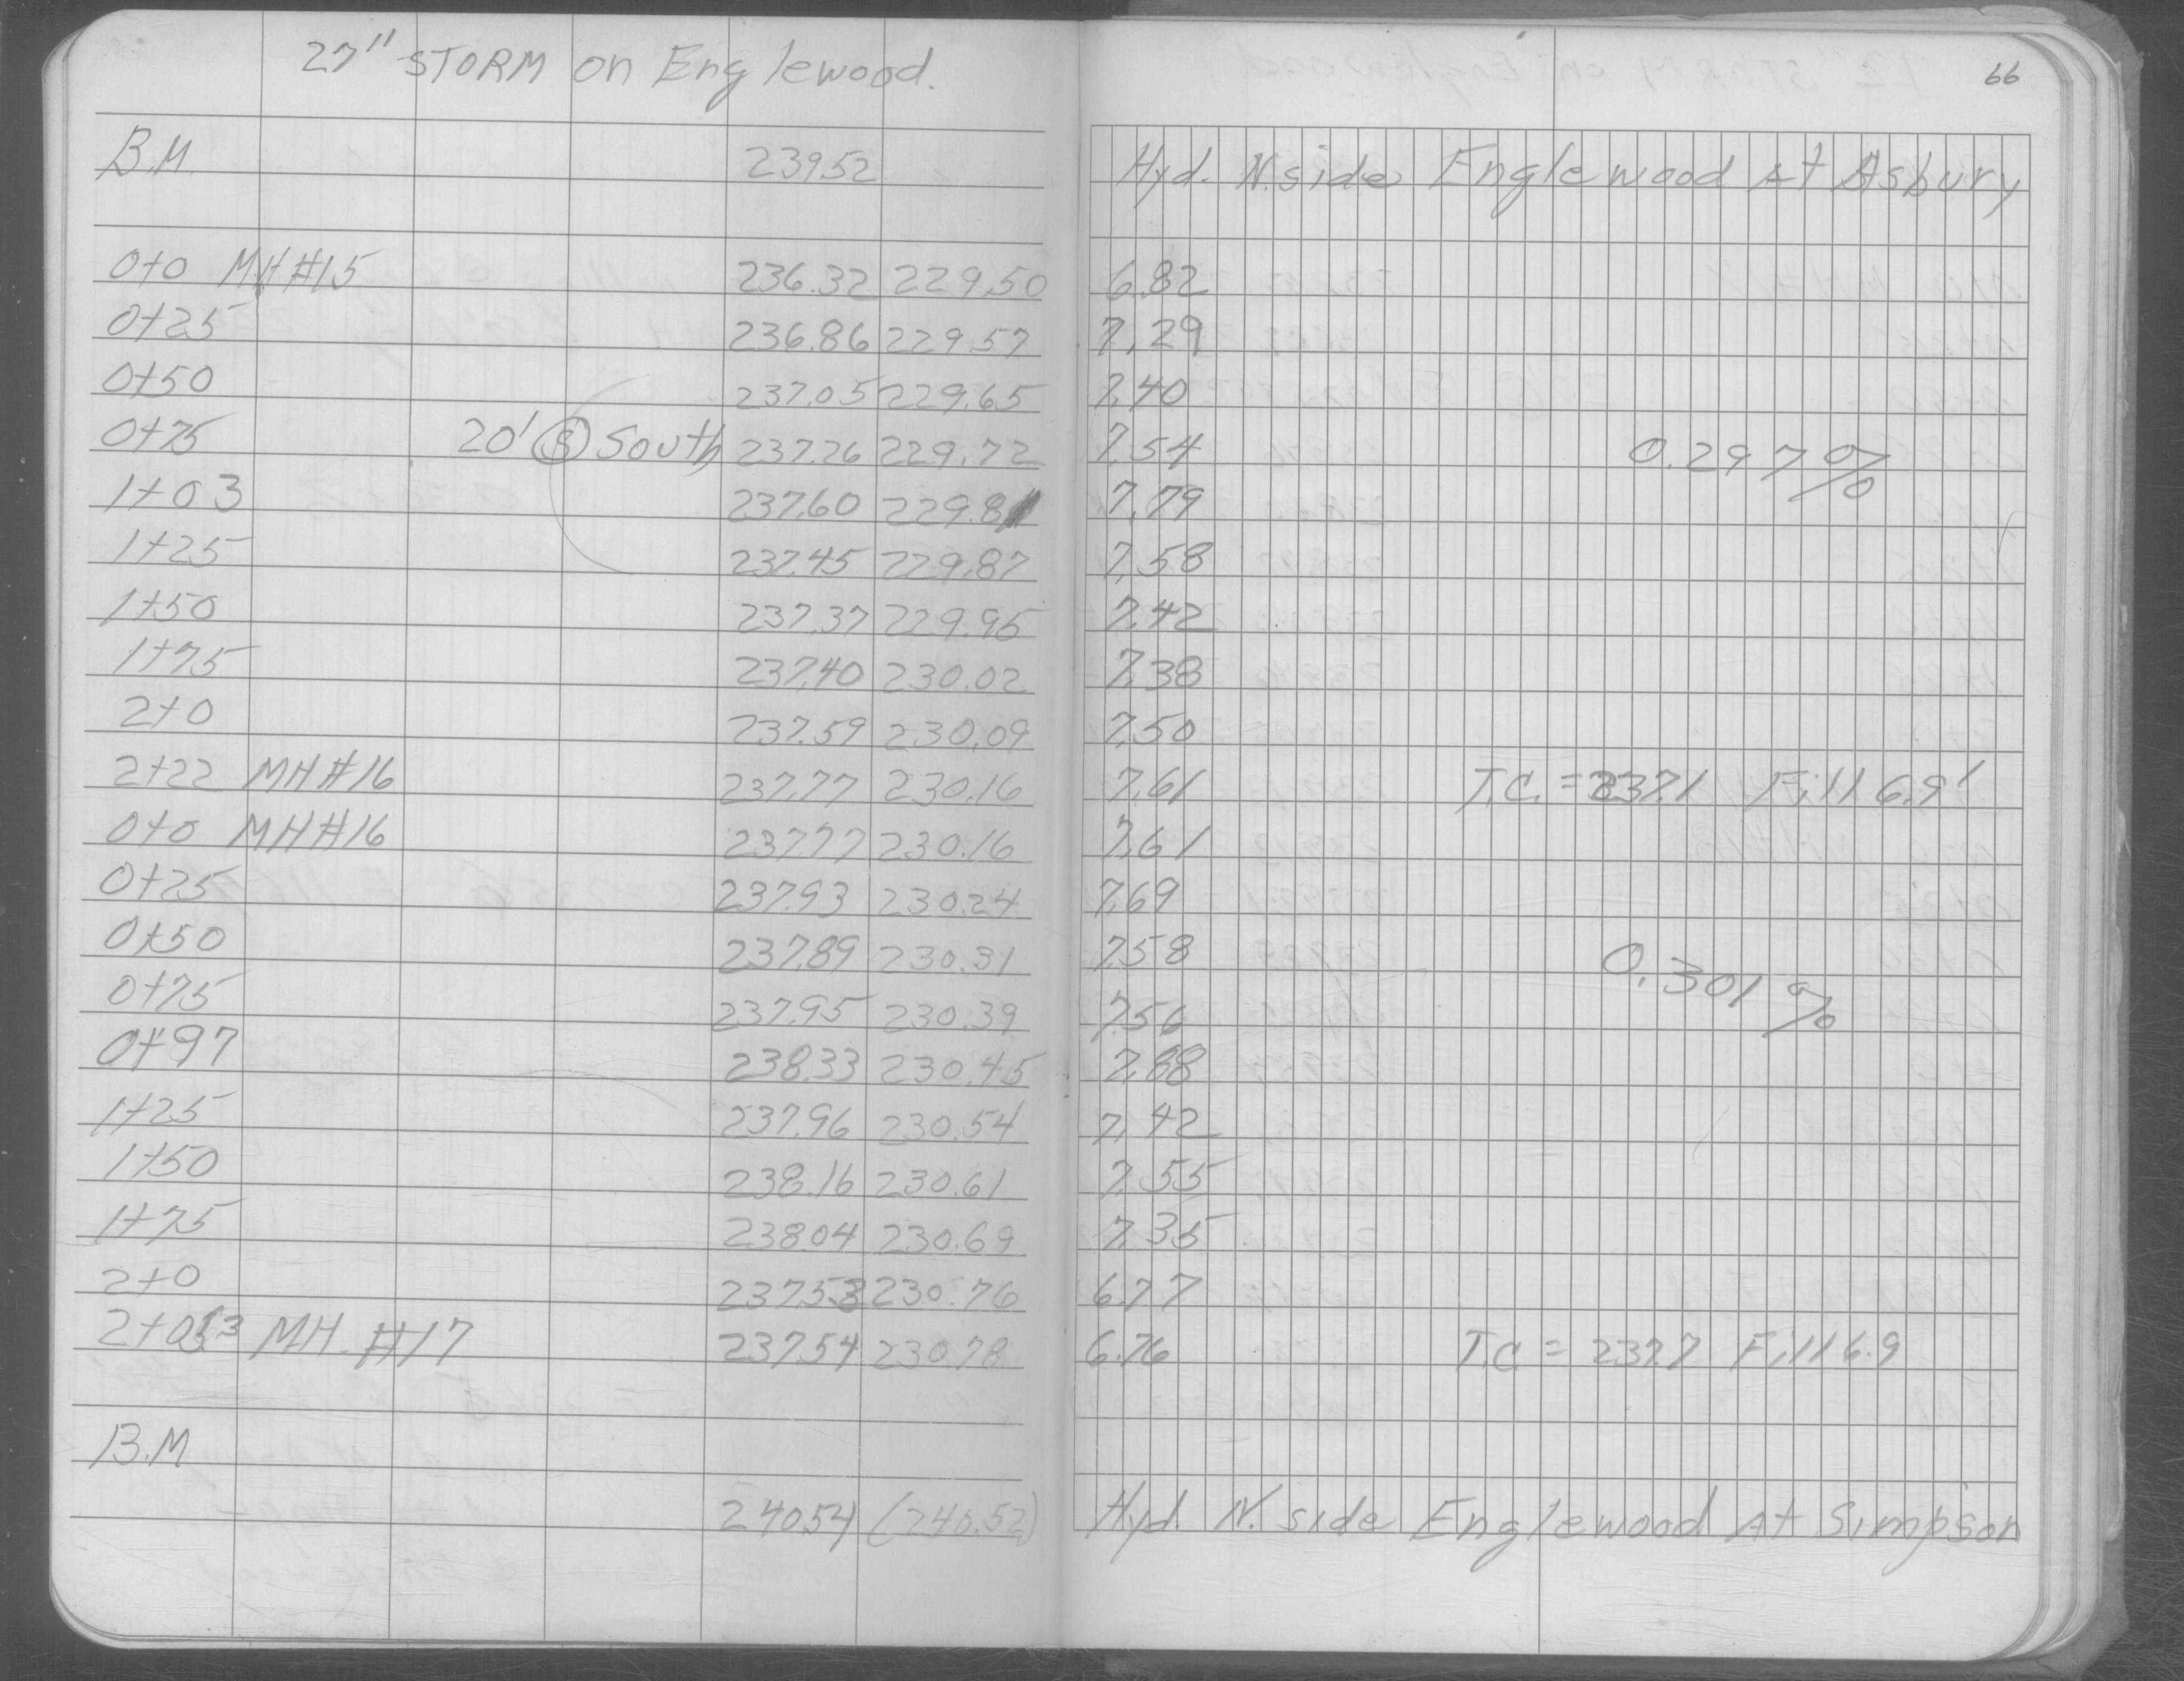 27" STORM on Englewood.
66
B.M. 239.52 Hyd. N. side Englewood At Asbury
0+0 MH #15 236.32 229.50 6.82
0+25 236.86 229.57 7.29
0+50 237.05 229.65 7.40
0+75 20' (S) South 237.26 229.72 7.54 0.297%
1+03 237.60 229.81 7.79
1+25 237.45 229.87 7.58
1+50 237.37 229.95 7.42
1+75 237.40 230.02 7.38
2+0 237.59 230.09 7.50
2+22 MH #16 237.77 230.16 7.61 T.C. = 237.1 Fill 6.9'
0+0 MH #16 237.77 230.16 7.61
0+25 237.93 230.24 7.69
0+50 237.89 230.31 7.58 0.301%
0+75 237.95 230.39 7.56
0+97 238.33 230.45 7.88
1+25 237.96 230.54 7.42
1+50 238.16 230.61 7.55
1+75 238.04 230.69 7.35
2+0 237.53 230.76 6.77
MH. #17 237.54 230.78 6.76 T.C = 237.7 Fill 6.9
B.M
240.54 (240.52) Hyd. N. side Englewood At Simpson